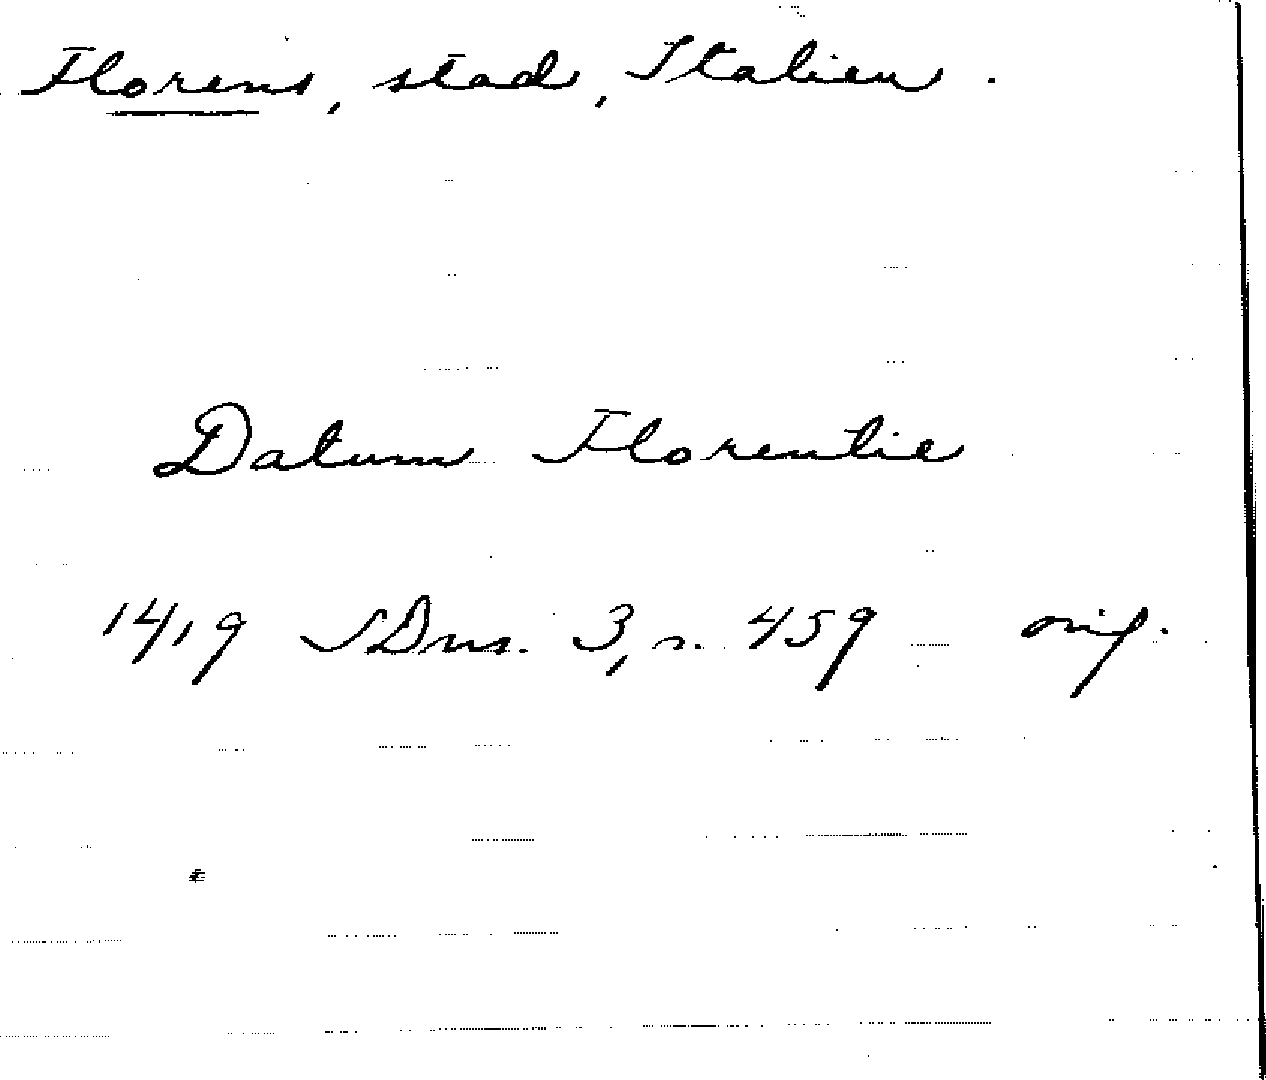 Florens, stad, Italien.
Datum Florentie
1419 SDns. 3, s. 459 orig.